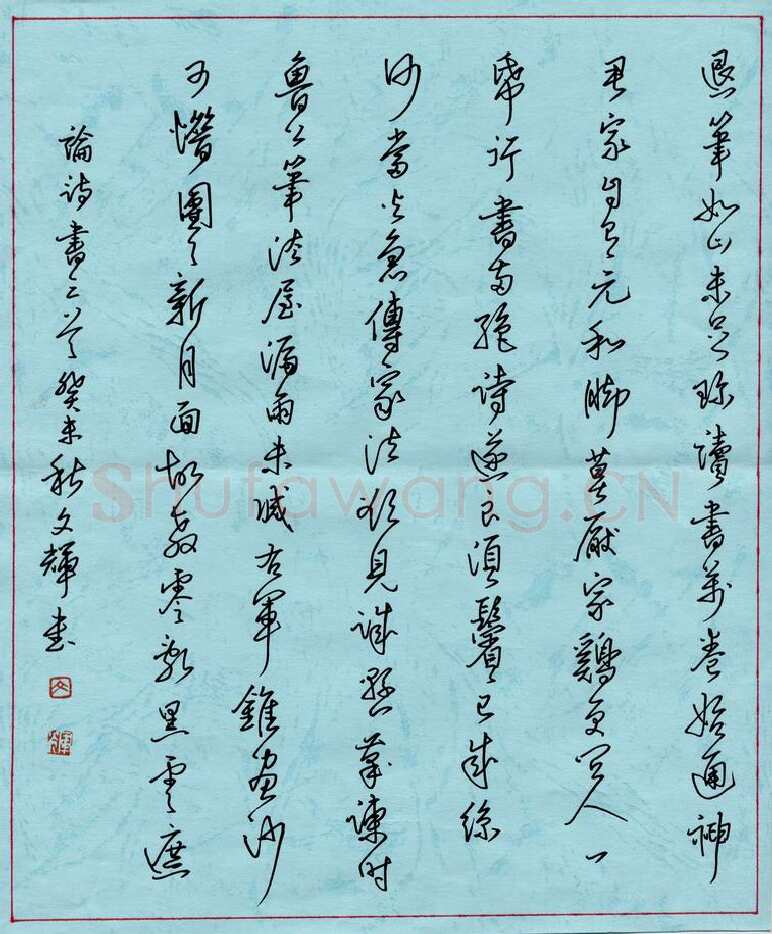 退筆如山未足珍讀書萬卷始通神
君家自有元和腳莫厭家雞更問人一
帋行書兩絕詩遂良須鬢已成絲
何當火急傳家法欲見誠懸筆諫時
魯公筆法屋漏雨未減右軍錐畫沙
可惜團團新月面故教零亂黑雲遮
論詩書三首癸未秋文輝書
Shufawang.CN